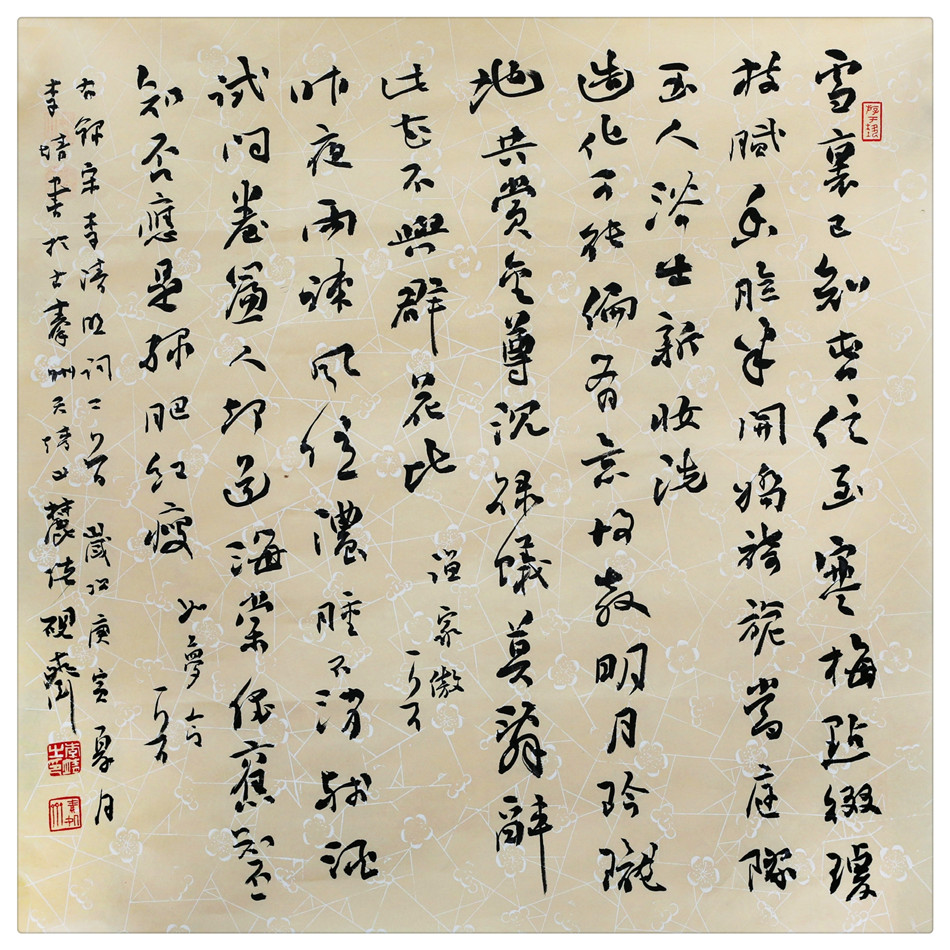 雪裏已知春信至寒梅點綴瓊
枝膩香臉半開嬌旖旎當庭際
玉人浴出新妝洗
造化可能偏有意故教明月玲瓏
地共賞金尊沉綠蟻莫辭醉
此花不與群花比 漁家傲一首
昨夜雨疎風住濃睡不消殘酒
試問卷簾人却道海棠依舊知否
知否應是綠肥紅瘦 如夢令一首
右錄宋李清照詞二首 歲次庚寅夏月
李靖書於古秦州天靖山麓佳硯齋